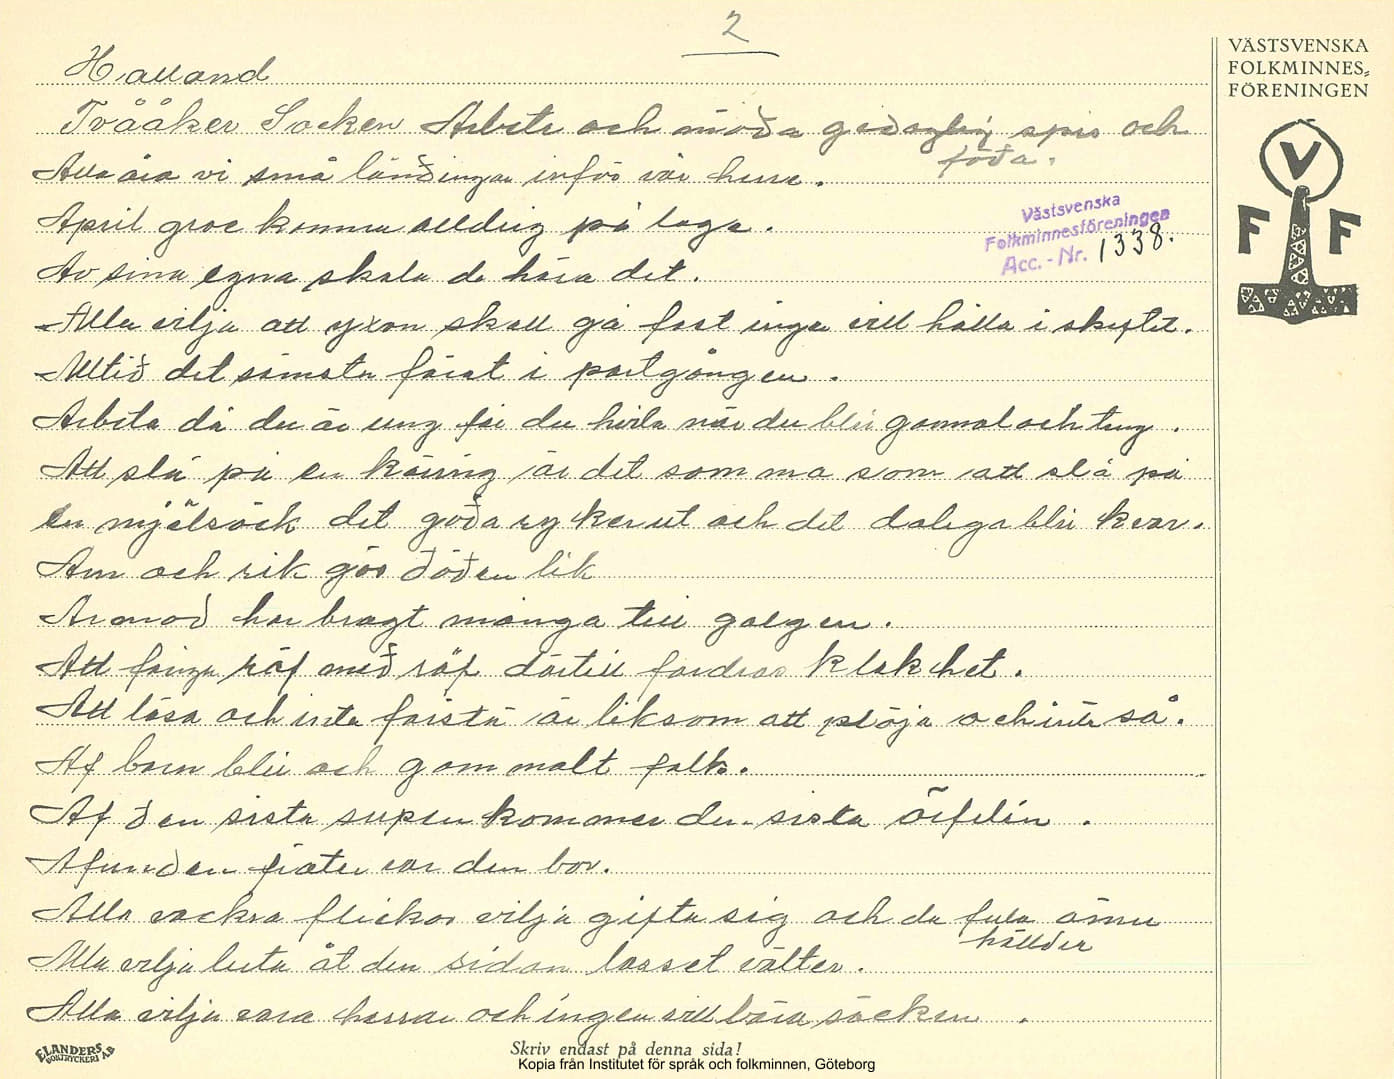 2
Halland
Tvååker Socken Arbete och möda gid daglig spis och
föda.
Alla äro vi små ländingar inför vår herre.
April groe komma alldrig på loga.
Av sina egna skola de hära det.
Alla vilja att yxan skall gå fast inga vill hålla i skaftet.
Alltid det sämsta först i portgången.
Arbeta då du är ung får du hvila när du blir gammal och tung.
Att slå på en käring är det somma som att slå på
en mjölsäck det goda ryker ut och det daliga blir kvar.
Arm och rik gör döden lik
Armod har bragt många till galgen.
Att fånga räf med räf därtill fordras klokhet.
Att läsa och inte förstå är liksom att plöja och inte så.
Af barn blir och gammalt folk.
Af den sista supen kommer den sista örfilen.
Afunden fräter var den bor.
Alla vackra flickor vilja gifta sig och da fula ännu
hälder
Alla vilja luta åt den sidan lasset välter.
Alla vilja vara herrar och ingen vill bära säcken.
VÄSTSVENSKA
FOLKMINNES-
FÖRENINGEN
V
F F
Västsvenska
Folkminnesföreningen
Acc.-Nr. 1338.
ELANDERS
BOKTRYCKERI AB
Skriv endast på denna sida!
Kopia från Institutet för språk och folkminnen, Göteborg